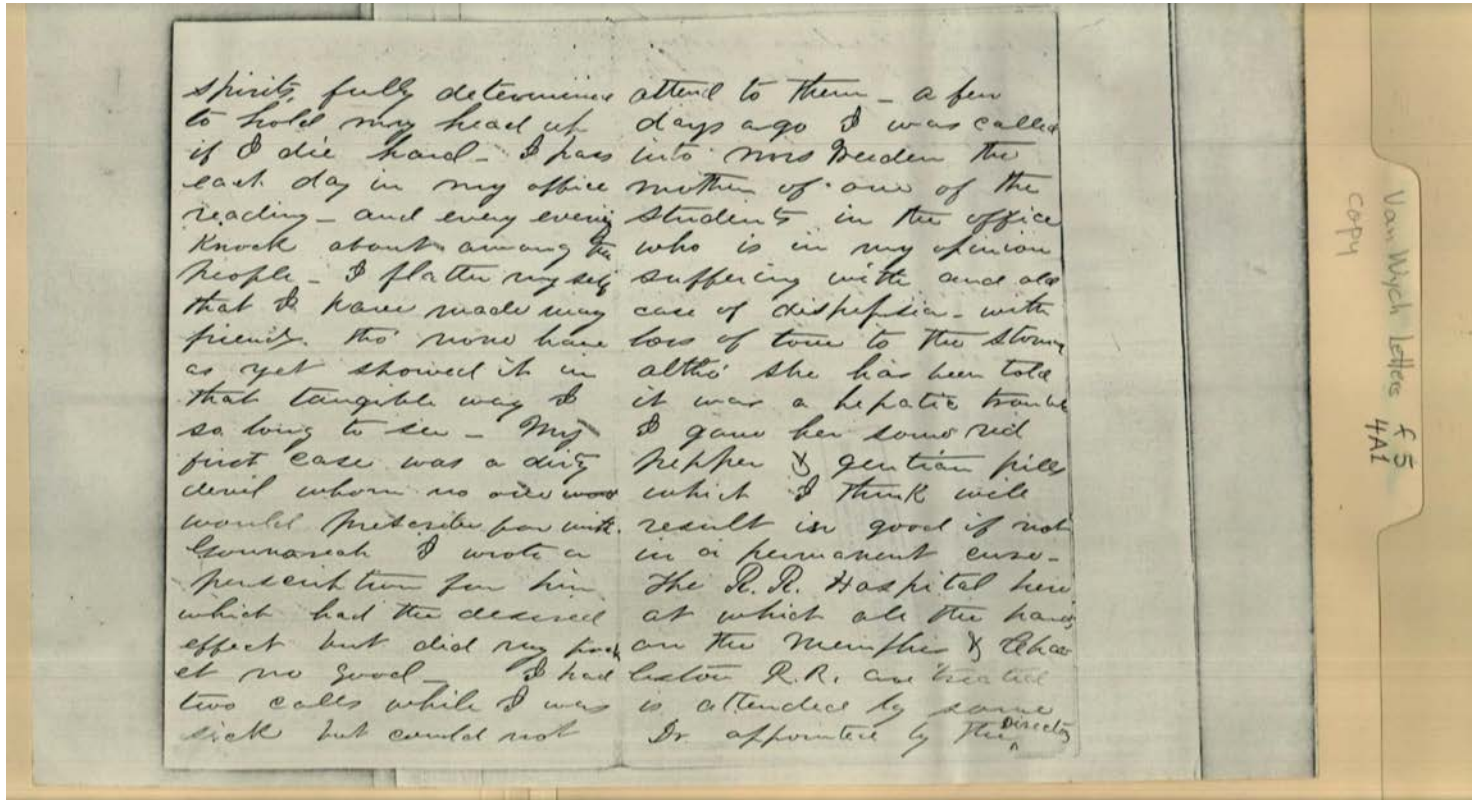 spirits, fully determine
to hold my head up
if I die hard - I pass
each day in my office
reading - and every evening
Knock about among the
people - I flatter myself
that I have made many
friends. tho' none have
as yet showed it in
that tangible way I
so long to see - My
first case was a dirty
devil whom no one
would prescribe for with
I wrote a
for him
which had the desired
effect but did my pock
et no good - I had
two calls while I was
sick but could not
attend to them - a few
days ago I was called
into Mrs the
mother of one of the
students in the office
who is in my opinion
suffering with and old
case of - with
loss of tone to the
altho' she has been told
it was a hepatic trouble
I gave her some red
pepper & gentian pills
which I think will
result in good if not
in a permanent cure -
The R.R. Hospital here
at which all the hands
on the Memphis & Char
leston R.R. are treated
is attended by some
Dr. appointed by the Directors
Van Wyck Letters f 5
4A1
COPY